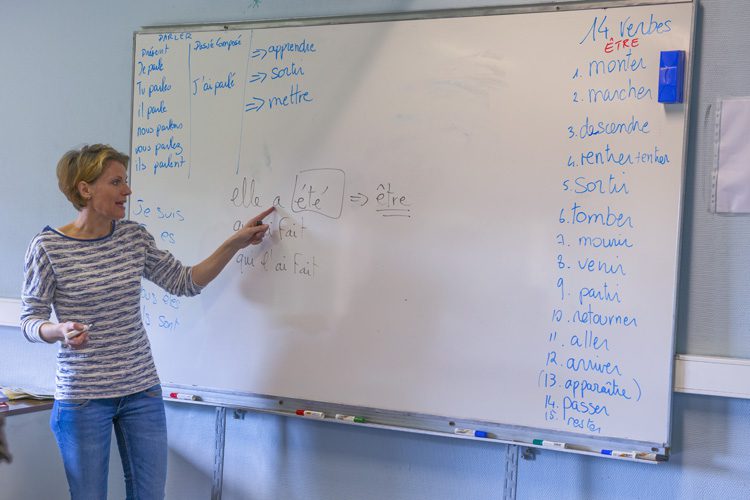 PARLER
Présent
Je parle
Tu parles
il parle
nous parlons
vous parlez
ils parlent
Passé Composé
J'ai parlé
=> apprendre
=> sortir
=> mettre
Je suis
es
sont
elle a été => être
ai fait
qui l'ai fait
14 verbes
ÊTRE
1. monter
2. marcher
3. descendre
4. rentrer + entrer
5. sortir
6. tomber
7. mourir
8. venir
9. partir
10. retourner
11. aller
12. arriver
(13. apparaître)
14. passer
15. rester